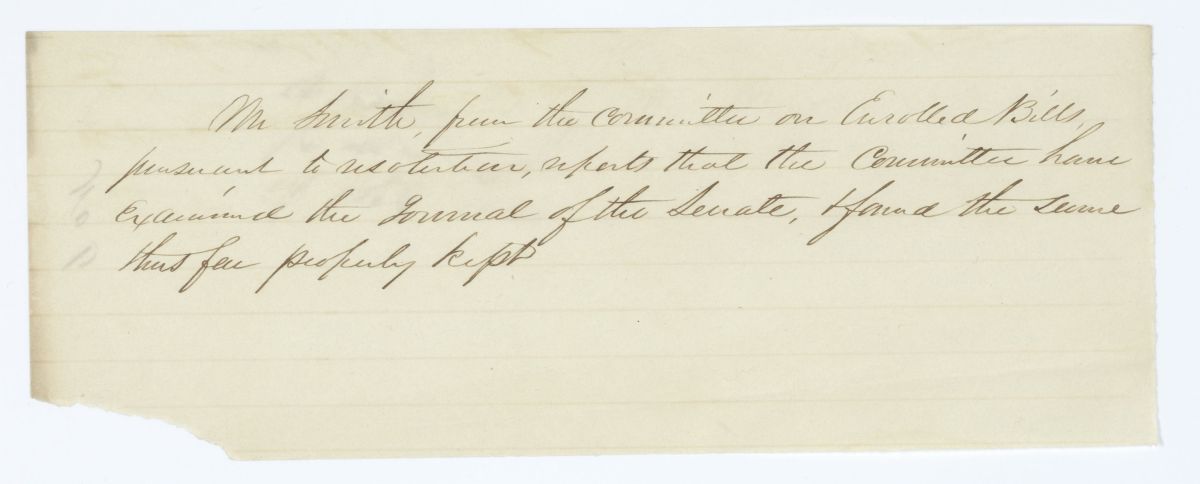 Mr Smith, from the Committee on Enrolled Bills,
pursuant to resolution, reports that the Committee have
Examined the Journal of the Senate, & found the same
thus far properly kept